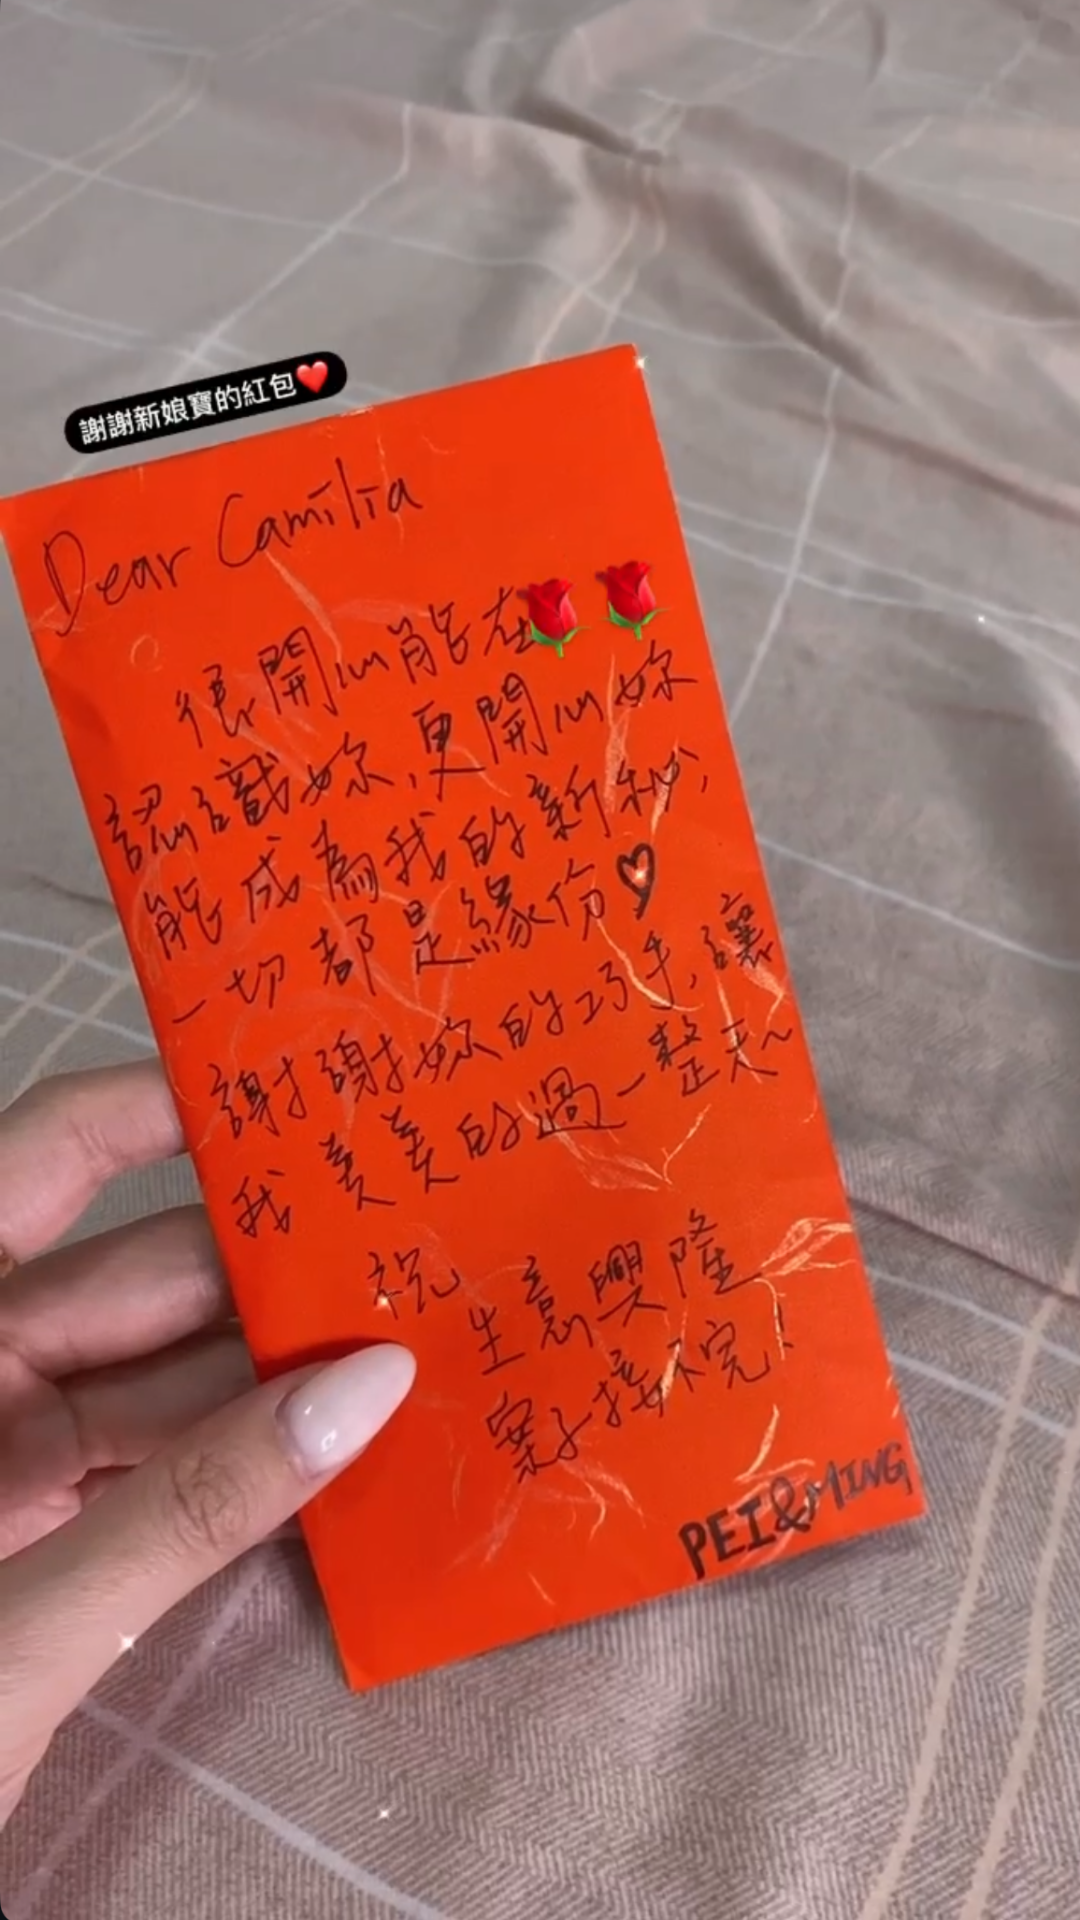 謝謝新娘寶的紅包❤️
Dear Camilia
很開心能在🌹🌹
認識妳,更開心妳
能成為我的新秘,
一切都是緣份♡
謝謝妳的巧手,讓
我美美的過一整天~
祝
生意興隆
案子接不完!
PEI&MING